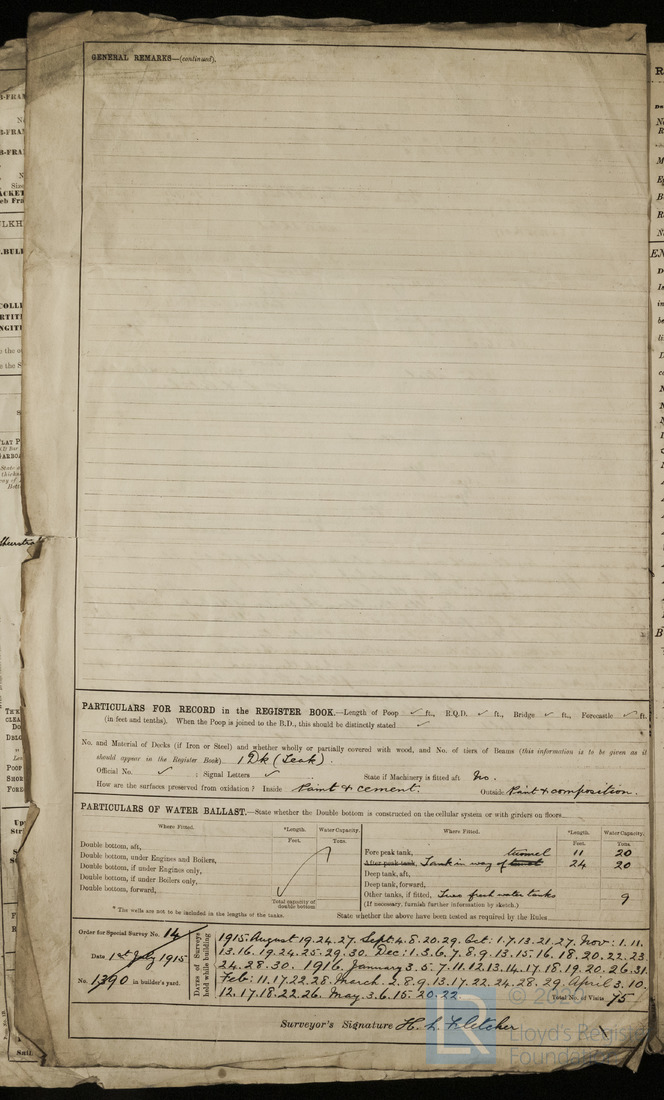 GENERAL REMARKS—(continued).
PARTICULARS FOR RECORD in the REGISTER BOOK.—Length of Poop ✓ ft., R.Q.D. ✓ ft., Bridge ✓ ft., Forecastle ✓ ft.
(in feet and tenths). When the Poop is joined to the B.D., this should be distinctly stated ✓
No. and Material of Decks (if Iron or Steel) and whether wholly or partially covered with wood, and No. of tiers of Beams (this information is to be given as it
should appear in the Register Book). 1 Dk (Teak).
Official No. ✓ ; Signal Letters ✓ State if Machinery is fitted aft No.
How are the surfaces preserved from oxidation? Inside Paint & cement. Outside Paint & composition.
PARTICULARS OF WATER BALLAST.—State whether the Double bottom is constructed on the cellular system or with girders on floors
Where Fitted. *Length. Water Capacity. Where Fitted. *Length. Water Capacity.
Feet. Tons. Feet. Tons.
Double bottom, aft,
Double bottom, under Engines and Boilers,
Double bottom, if under Engines only,
Double bottom, if under Boilers only,
Double bottom, forward,
Total capacity of double bottom
Fore peak tank, 11 20
After peak tank, Tank in way of tunnel 24 20
Deep tank, aft,
Deep tank, forward,
Other tanks, if fitted, Two fresh water tanks 9
(If necessary, furnish further information by sketch.)
* The wells are not to be included in the lengths of the tanks. State whether the above have been tested as required by the Rules
Order for Special Survey No. 14
Date 1st July 1915
No. 1390 in builder's yard.
Dates of Surveys held while building
1915. August. 19. 24. 27. Sept. 4. 8. 20. 29. Oct. 1. 7. 13. 21. 27. Nov: 1. 11.
13. 16. 19. 24. 25. 29. 30. Dec: 1. 3. 6. 7. 8. 9. 13. 15. 16. 18. 20. 22. 23.
24. 28. 30. 1916. January 3. 5. 7. 11. 12. 13. 14. 17. 18. 19. 20. 26. 31.
Feb: 11. 17. 22. 28. March. 2. 8. 9. 13. 17. 22. 24. 28. 29. April 3. 10.
12. 17. 18. 22. 26. May. 3. 6. 15. 20. 22 Total No. of Visits 75
Surveyor's Signature H. L. Fletcher
LR
Lloyd's Register
Foundation